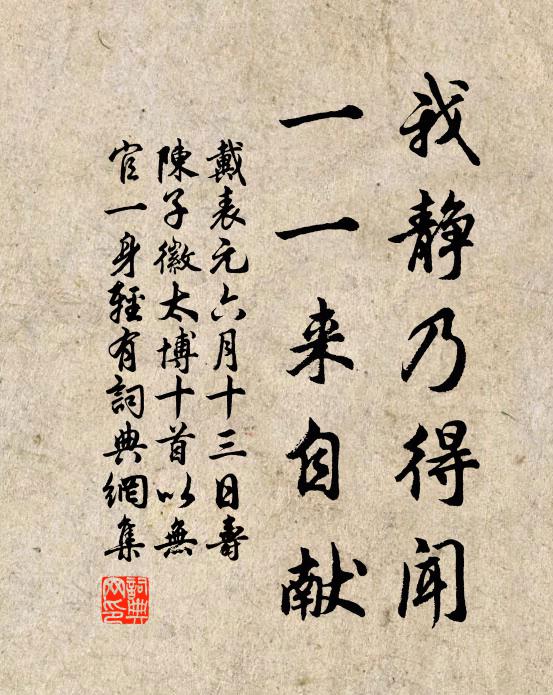 我静乃得闻
一一来自献
戴表元六月十三日壽
陳子徽太博十首以無
官一身輕有詞典網集
詞典
网印